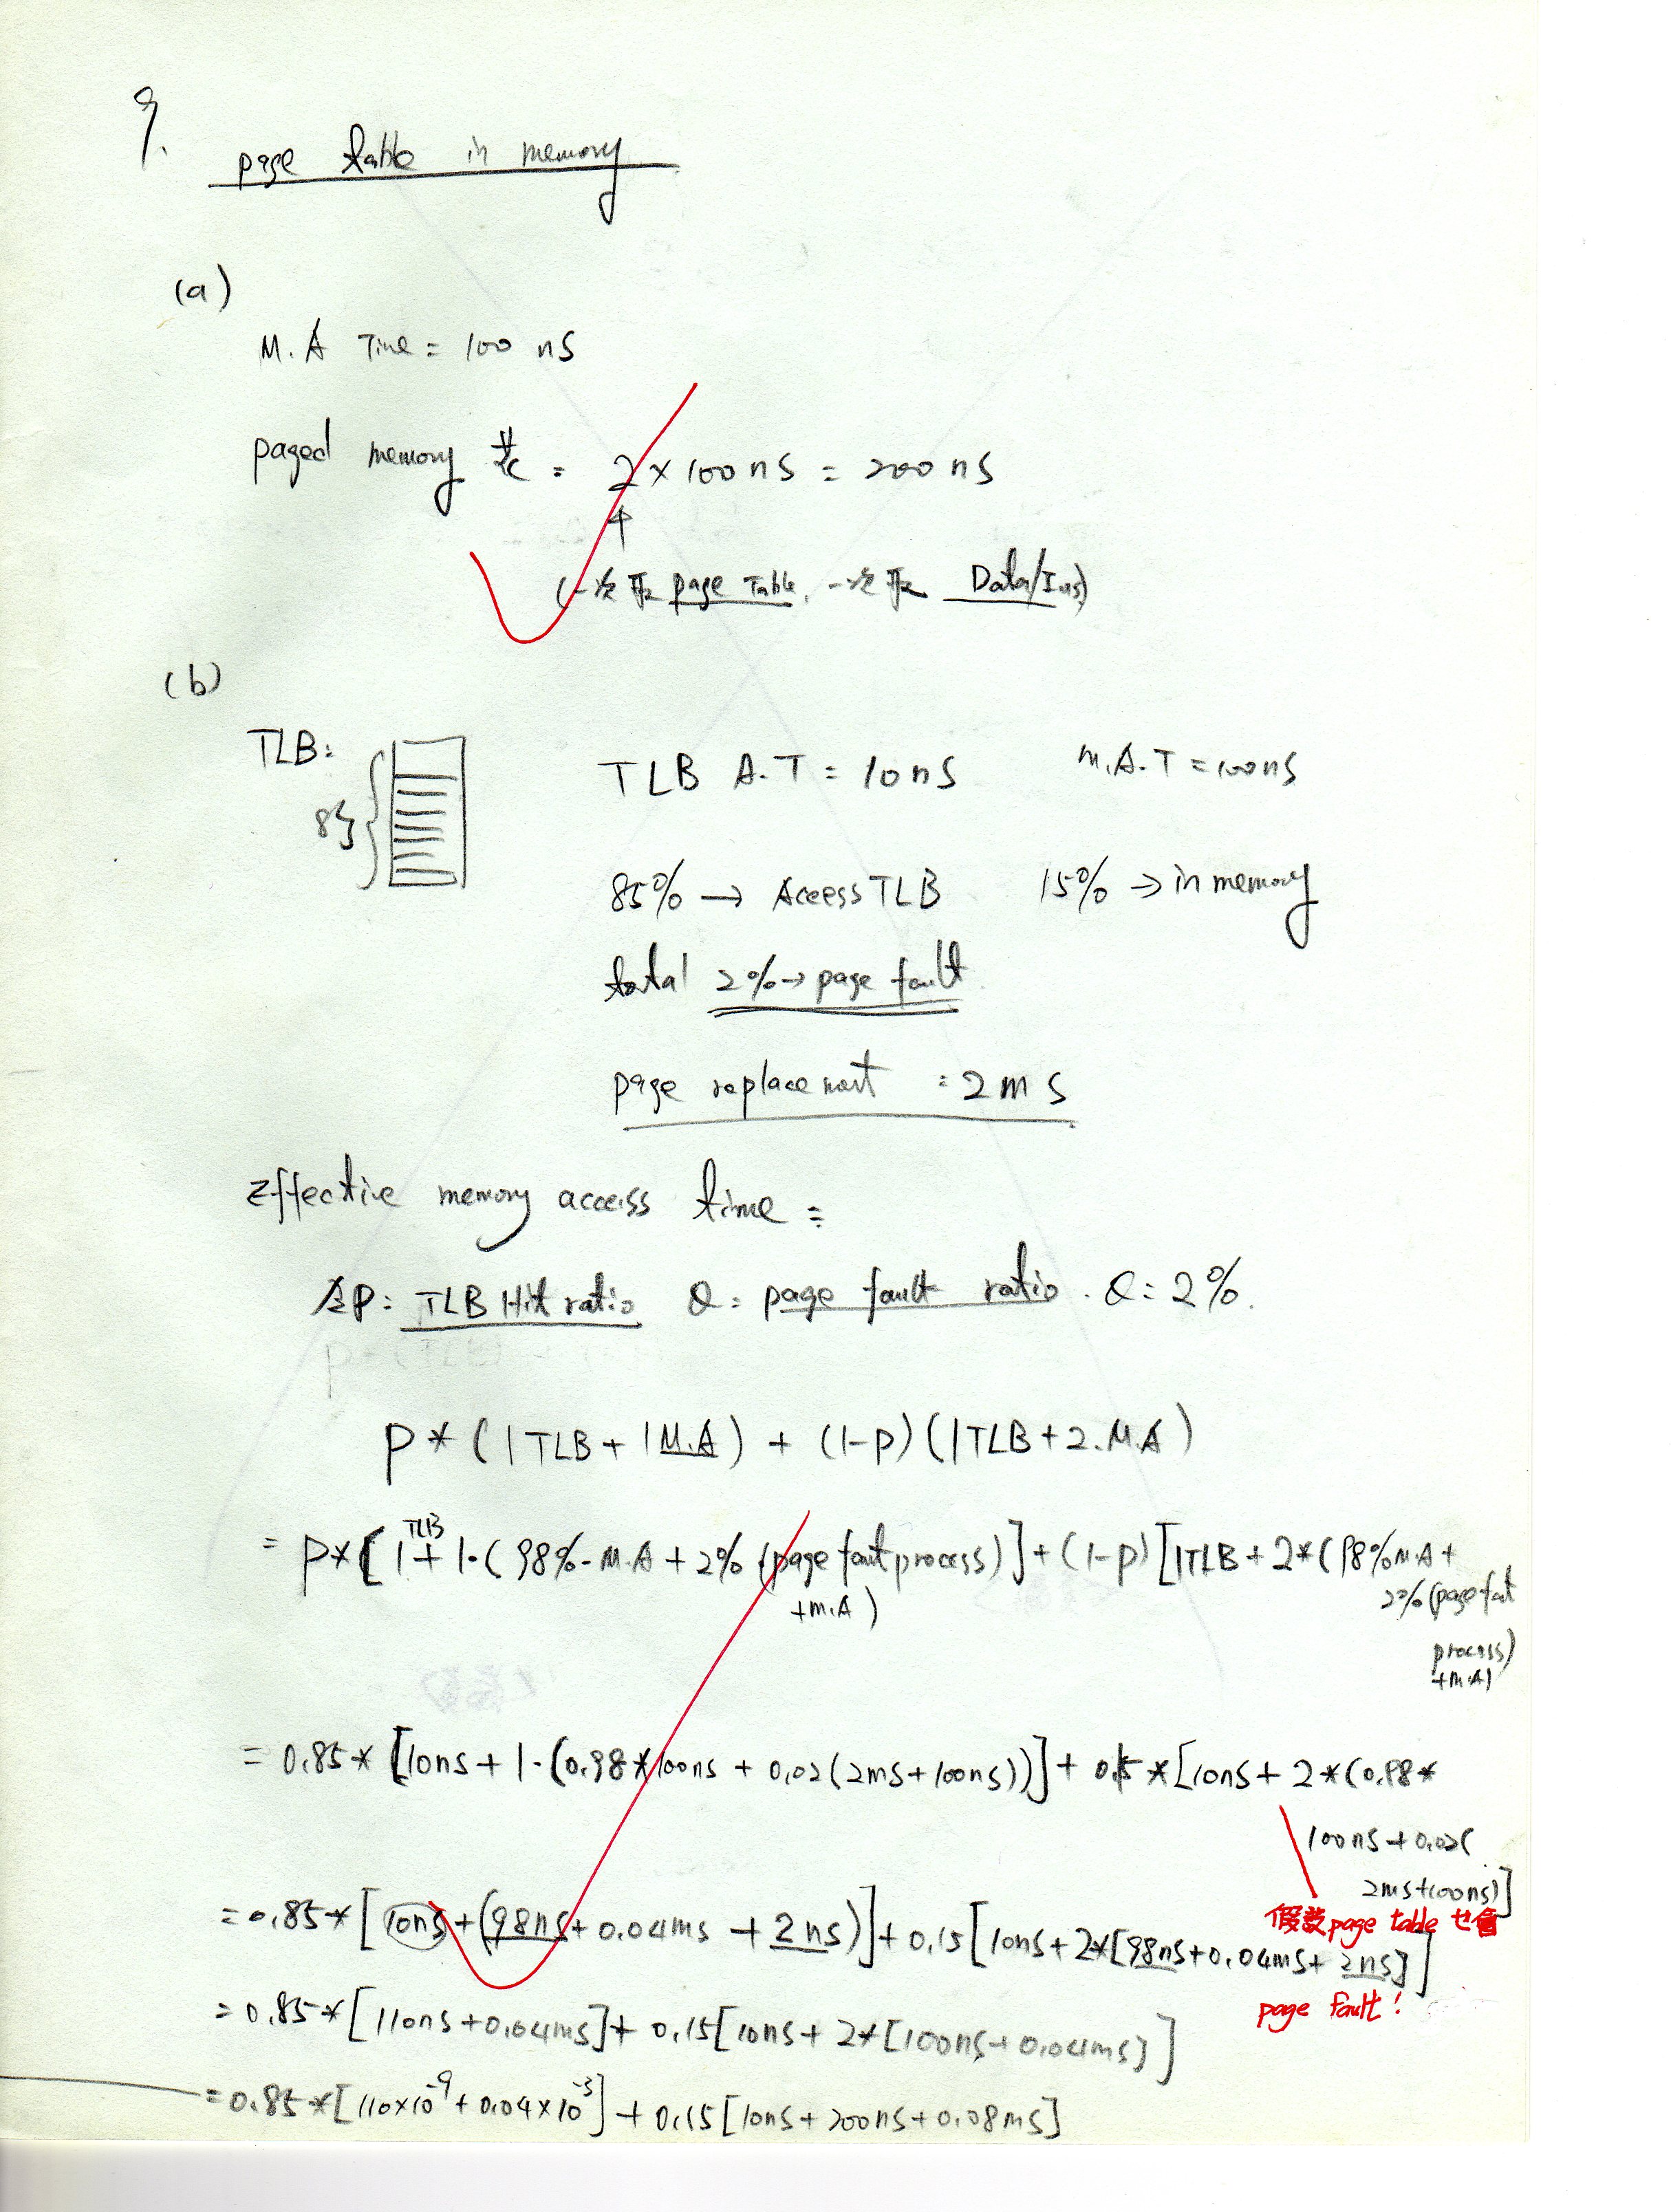 9.
page table in memory
(a)
M.A Time = 100 ns
paged memory 共 = 2 × 100 ns = 200 ns
(一次 page Table, 一次 Data/Ins)
(b)
TLB: 8个 TLB A.T = 10 ns M.A.T = 100 ns
85% → Access TLB 15% → in memory
total 2% → page fault
page replacement = 2 ms
Effective memory access time =
令P: TLB Hit ratio Q: page fault ratio. Q = 2%.
P * (1 TLB + 1 M.A) + (1-P)(1 TLB + 2. M.A)
= P * [1 TLB + 1·(98%·M.A + 2% (page faut process + M.A)] + (1-P) [1TLB + 2*(98% M.A + 2% (page faut process) + M.A)
= 0.85 * [10ns + 1·(0.98*100ns + 0.02(2ms+100ns))] + 0.15 * [10ns + 2*(0.98*
100ns + 0.02(
2ms+100ns)]
= 0.85 * [10ns + (98ns + 0.04ms + 2ns)] + 0.15 [10ns + 2*[98ns + 0.04ms + 2ns]]
假设 page table 也會
page fault!
= 0.85 * [110ns + 0.04ms] + 0.15 [10ns + 2*[100ns + 0.04ms]]
= 0.85 * [110×10^-9 + 0.04×10^-3] + 0.15 [10ns + 200ns + 0.08ms]